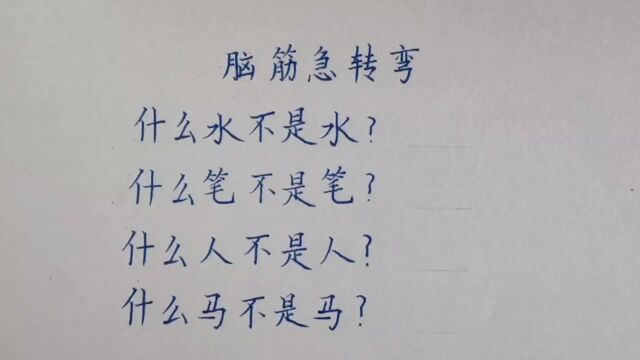 脑筋急转弯
什么水不是水?
什么笔不是笔?
什么人不是人?
什么马不是马?